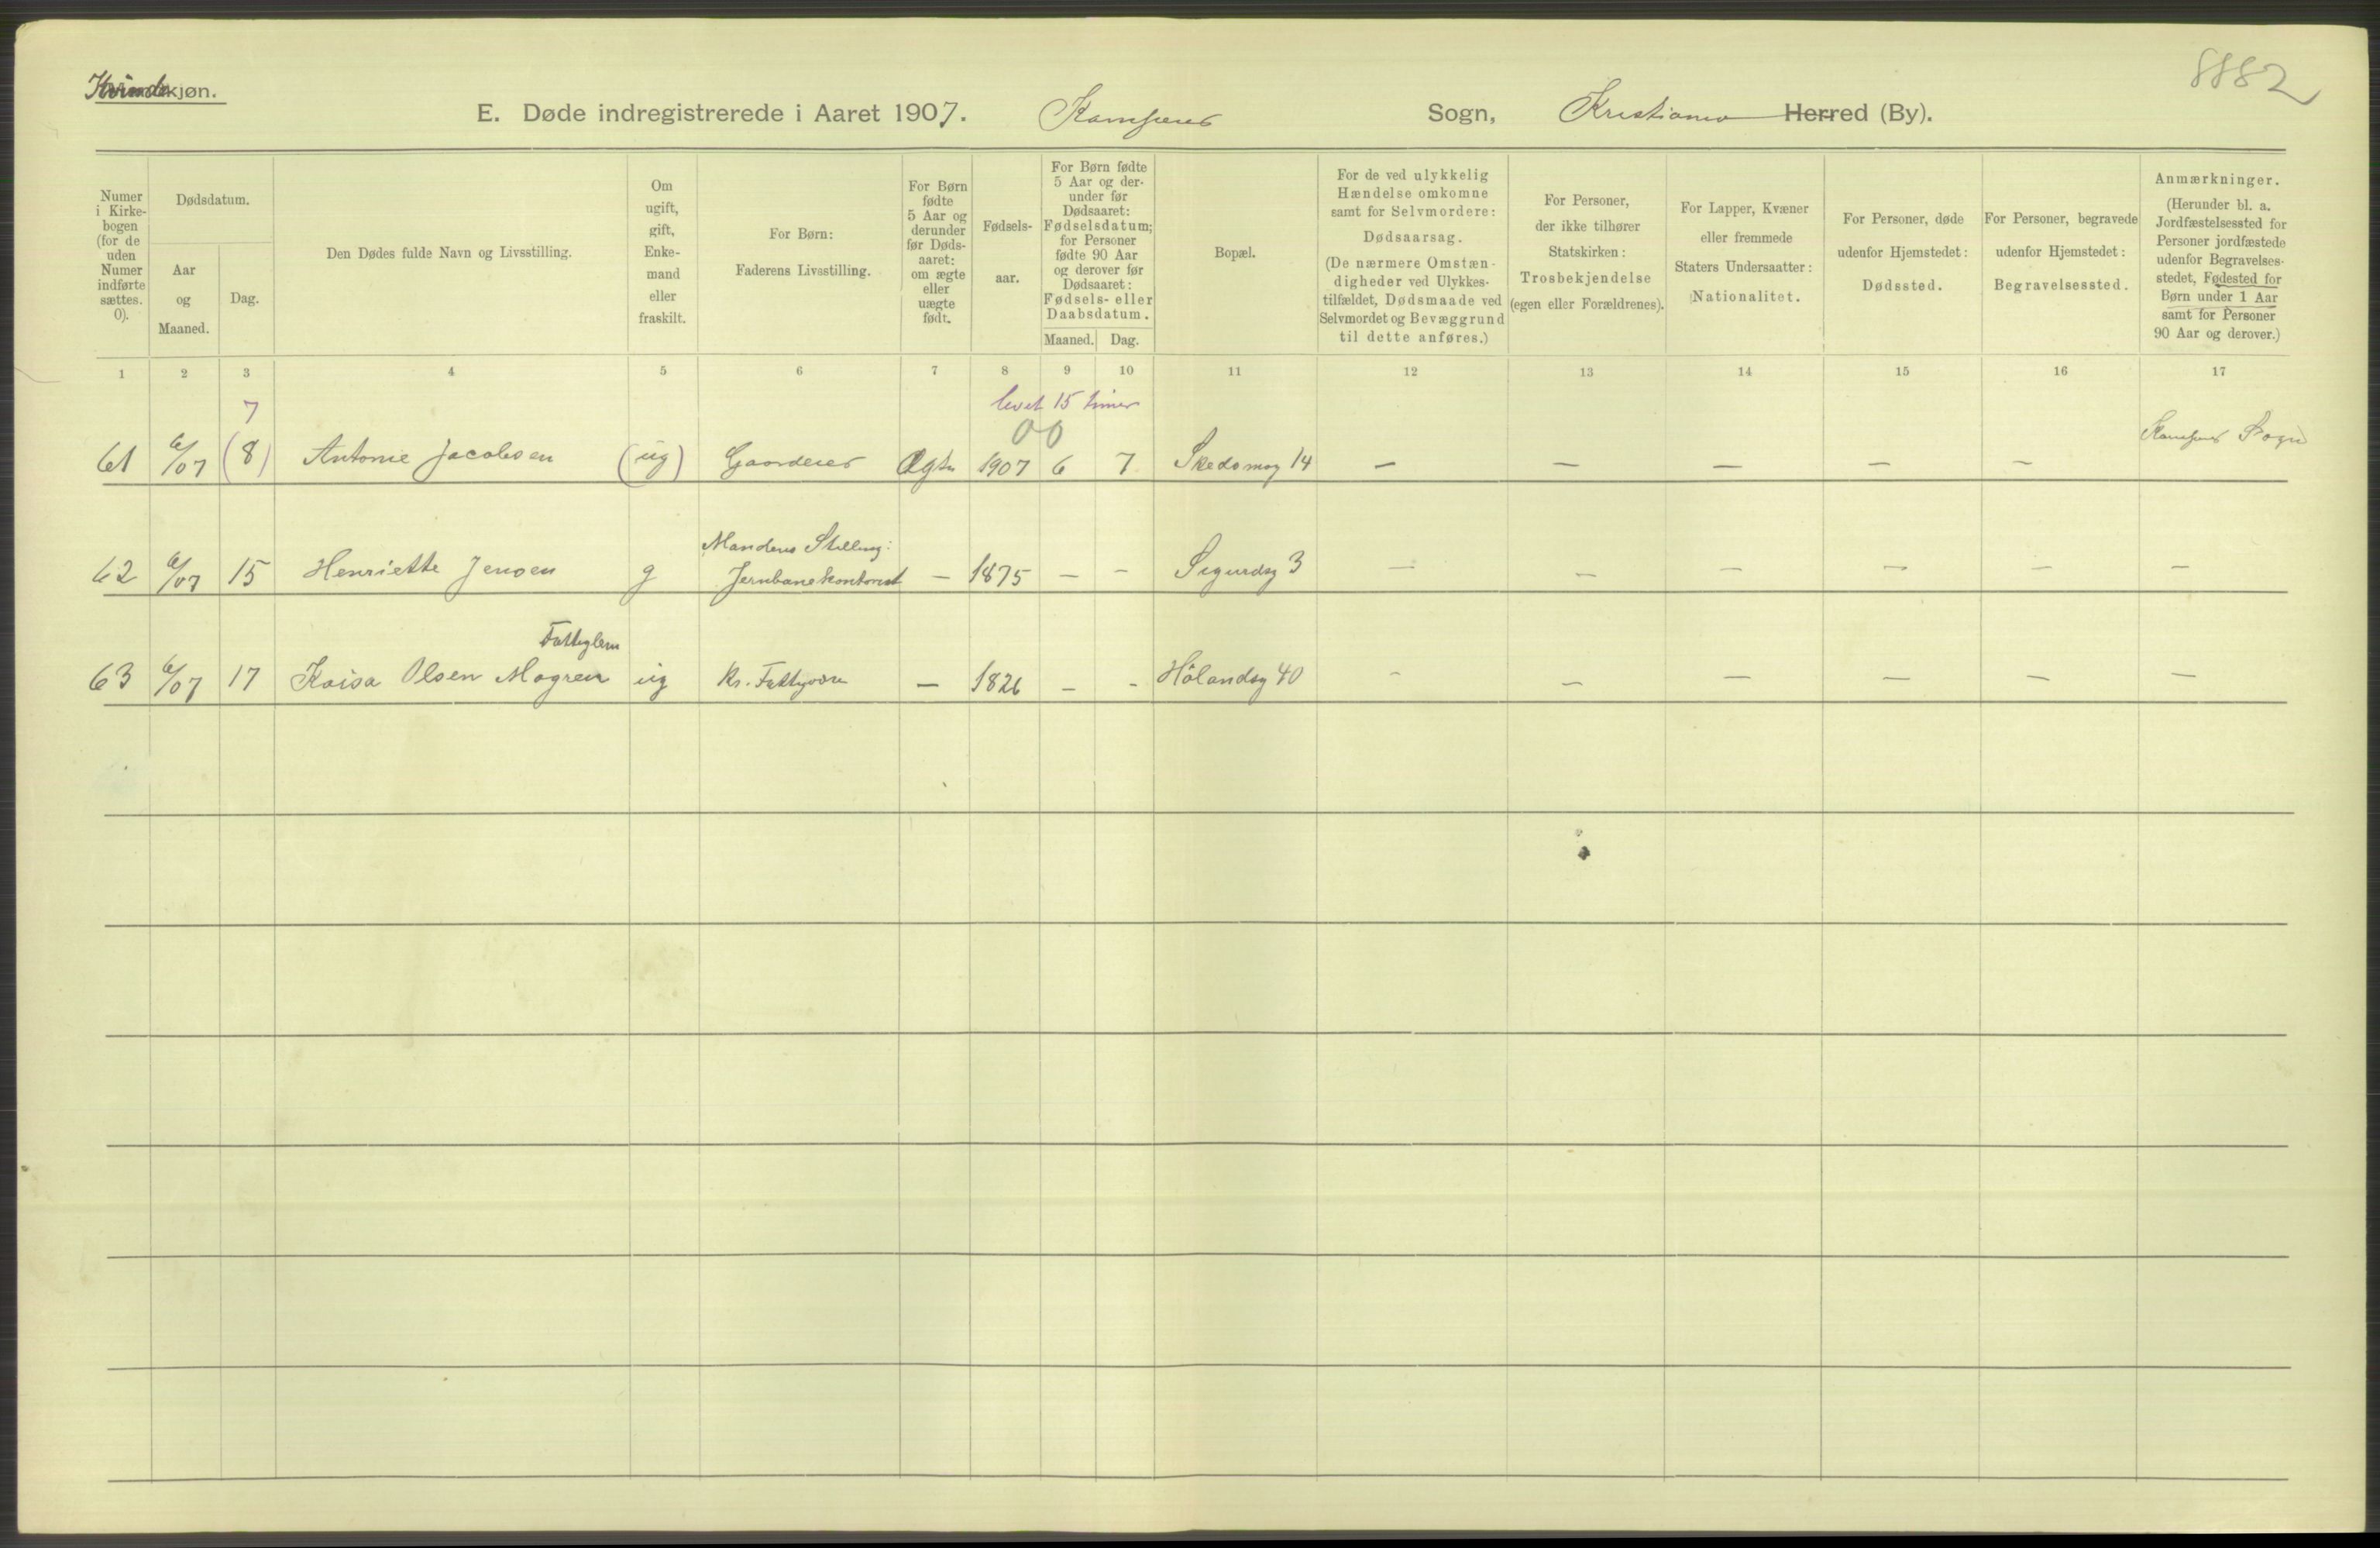 8882
Kvindekjøn.
E. Døde indregistrerede i Aaret 1907. Kampens Sogn, Kristiania Herred (By).
Numer i Kirkebogen (for de uden Numer indførte sættes. 0).
Dødsdatum.
Aar og Maaned.
Dag.
Den Dødes fulde Navn og Livsstilling.
Om ugift, gift, Enkemand eller fraskilt.
For Børn:
Faderens Livsstilling.
For Børn fødte 5 Aar og derunder før Dødsaaret: om ægte eller uægte født.
Fødselsaar.
For Børn fødte 5 Aar og derunder før Dødsaaret: Fødselsdatum; for Personer fødte 90 Aar og derover før Dødsaaret: Fødsels- eller Daabsdatum.
Maaned. Dag.
Bopæl.
For de ved ulykkelig Hændelse omkomne samt for Selvmordere: Dødsaarsag. (De nærmere Omstændigheder ved Ulykkestilfældet, Dødsmaade ved Selvmordet og Bevæggrund til dette anføres.)
For Personer, der ikke tilhører Statskirken: Trosbekjendelse (egen eller Forældrenes).
For Lapper, Kvæner eller fremmede Staters Undersaatter: Nationalitet.
For Personer, døde udenfor Hjemstedet: Dødssted.
For Personer, begravede udenfor Hjemstedet: Begravelsessted.
Anmærkninger. (Herunder bl. a. Jordfæstelsessted for Personer jordfæstede udenfor Begravelsesstedet, Fødested for Børn under 1 Aar samt for Personer 90 Aar og derover.)
1 2 3 4 5 6 7 8 9 10 11 12 13 14 15 16 17
7 levet 15 timer
00
61 6/07 (8) Antonie Jacobsen (ug) Gaardeier Ægte 1907 6 7 Skedsmog 14 — — — — — Kampens Sogn
Mandens Stilling:
62 6/07 15 Henriette Jensen g Jernbanekontorist — 1875 — — Sigurdsg 3 — — — — — —
Fattiglem
63 6/07 17 Kaisa Olsen Mogren ug Kr. Fattigvæsen — 1826 — - Hölandsg 40 - — — — — —